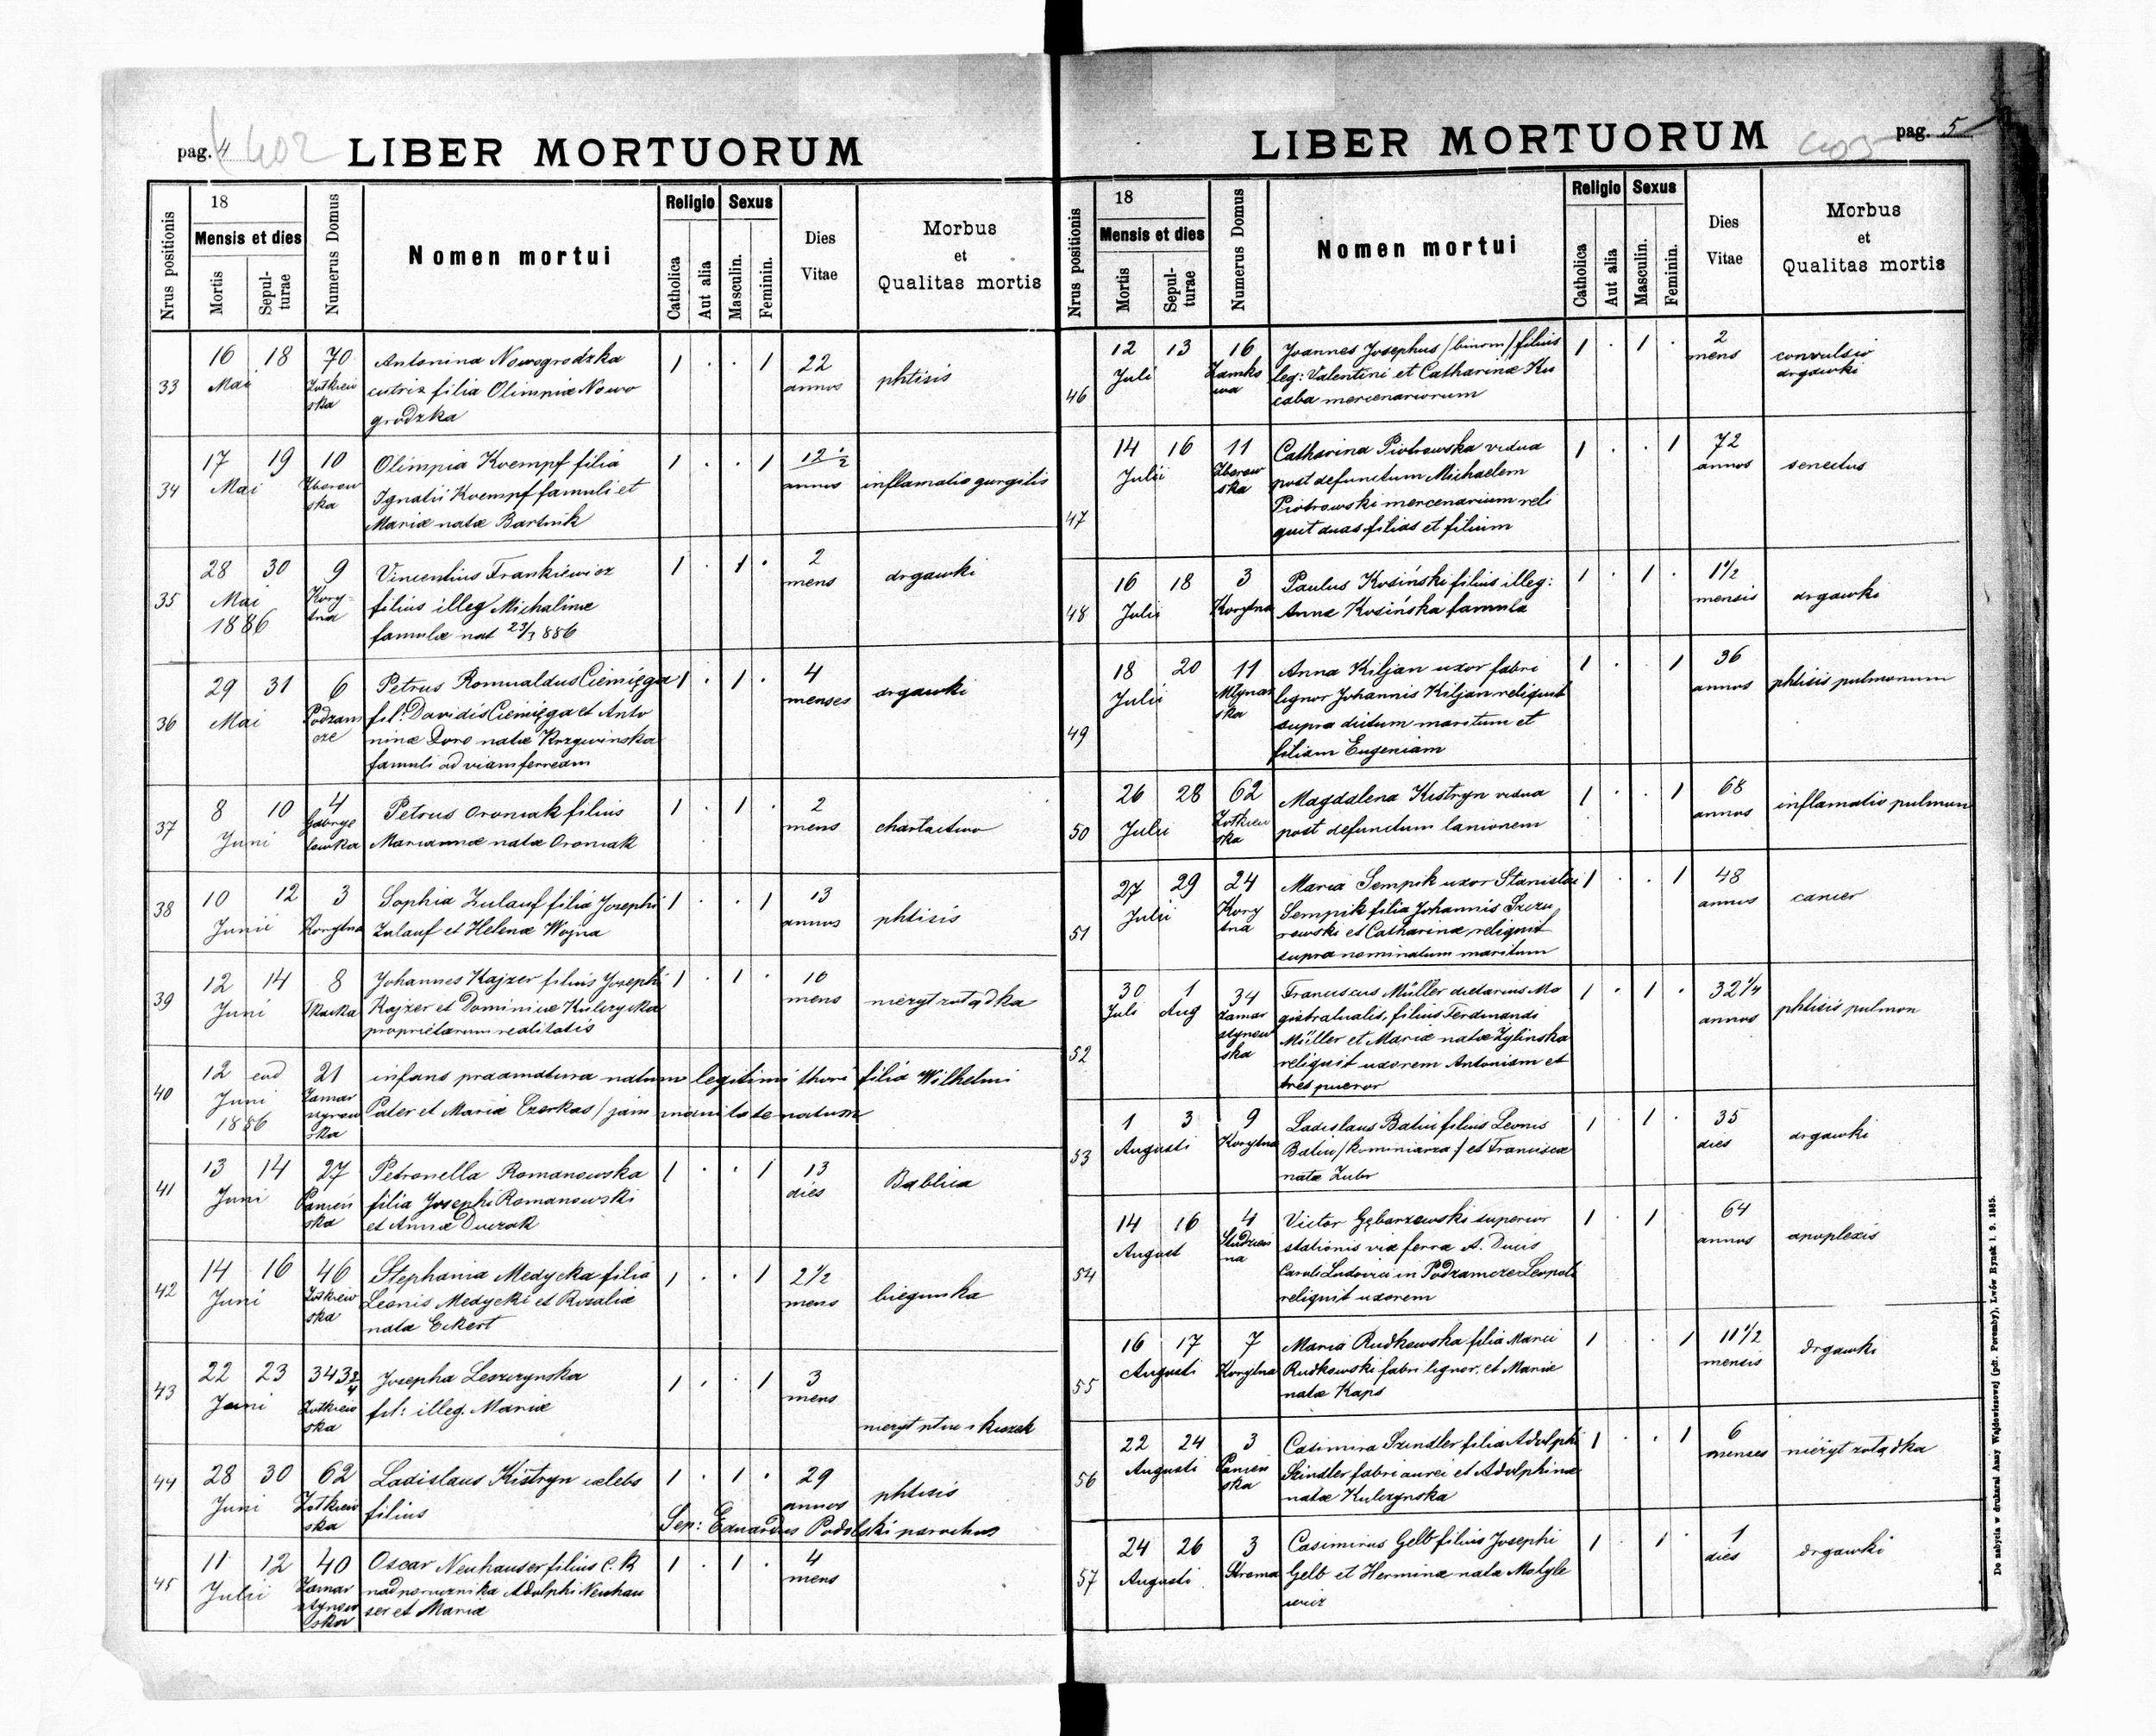 pag. 4 402
LIBER MORTUORUM
Nrus positionis
18
Mensis et dies
Mortis
Sepul-
turae
Numerus Domus
Nomen mortui
Religio
Catholica
Aut alia
Sexus
Masculin.
Feminin.
Dies
Vitae
Morbus
et
Qualitas mortis
33 16 18 Mai 70 Żołkiew
ska
Antonina Nowogrodzka
filia Olimpiæ Nowo
grodzka
1 . . 1 22
annos
phtisis
34 17 19 Mai 10 Zborow
ska
Olimpia Kroempf filia
Ignatii Kroempf famuli et
Mariæ natæ Bartnik
1 . . 1 12 1/2
annos
inflamatio gurgilis
35 28 30 Mai
1886
9 Kory-
tna
Vincentius Frankiewicz
filius illeg Michalinæ
famulæ nat 23/3 886
1 . 1 . 2
mens
drgawki
36 29 31 Mai 6 Podzam
cze
Petrus Romualdus Ciemięga
fil: Davidis Ciemięga et Anto
ninæ natæ Krzywinska
famuli ad viam ferream
1 . 1 . 4
menses
drgawki
37 8 10 Juni 4 Gabrye
lowka
Petrus Oroniak filius
Mariannæ natæ Oroniak
1 . 1 . 2
mens
38 10 12 Junii 3 Korytna
Sophia Zulauf filia Josephi
Zulauf et Helenæ Wojna
1 . . 1 13
annos
phtisis
39 12 14 Juni 8 Tkacka
Johannes Kajzer filius Josephi
Kajzer et Dominicæ Kulczycka
proprietarum realitatis
1 . 1 . 10
mens
nieżyt żołądka
40 12 eod Juni
1886
21 Zamar
stynow
ska
infans præmatura natum legitimi thori filia Wilhelmi
Pater et Mariæ Czerkas / jam natum
41 13 14 Juni 27 Panień
ska
Petronella Romanowska
filia Josephi Romanowski
et Annæ Duczak
1 . . 1 13
dies
42 14 16 Juni 46 Żołkiew
ska
Stephania Medycka filia
Leonis Medycki et Rozaliæ
nata Eckert
1 . . 1 2 1/2
mens
biegunka
43 22 23 Juni 343 2/4 Żołkiew
ska
Josepha Leszczynska
fil: illeg. Mariæ
1 . . 1 3
mens
nieżyt płuc i kiszek
44 28 30 Juni 62 Żołkiew
ska
Ladislaus Kistryn cælebs
filius
1 . 1 . 29
annos
phtisis
Sep: Eduardus Podolski parochus
45 11 12 Julii 40 Zamar
stynow
ska
Oscar Neuhauser filius C. K
nadporucznika Adolphi Neuhau
ser et Mariæ
1 . 1 . 4
mens
LIBER MORTUORUM
403 pag. 5
Nrus positionis
18
Mensis et dies
Mortis
Sepul-
turae
Numerus Domus
Nomen mortui
Religio
Catholica
Aut alia
Sexus
Masculin.
Feminin.
Dies
Vitae
Morbus
et
Qualitas mortis
46 12 13 Juli 16 Zamko
wa
Joannes Josephus /binom/ filius
leg: Valentini et Catharinæ Ku
caba mercenariorum
1 . 1 . 2
mens
convulsio
drgawki
47 14 16 Julii 11 Zborow
ska
Catharina Piotrowska vidua
post defunctum Michaelem
Piotrowski mercenarium reli
quit duas filias et filium
1 . . 1 72
annos
senectus
48 16 18 Julii 3 Korytna
Paulus Kosiński filius illeg:
Annæ Kosińska famula
1 . 1 . 1 1/2
mensis
drgawki
49 18 20 Julii 11 Młynar
ska
Anna Kiljan uxor fabri
lignor Johannis Kiljan reliquit
supra dictum maritum et
filiam Eugeniam
1 . . 1 36
annos
phtisis pulmonum
50 26 28 Julii 62 Żołkiew
ska
Magdalena Kistryn vidua
post defunctum lanionem
1 . . 1 68
annos
inflamatio pulmon
51 27 29 Julii 24 Kory
tna
Maria Sempik uxor Stanislai
Sempik filia Johannis Szczu
rowski et Catharinæ reliquit
supra nominatum maritum
1 . . 1 48
annos
cancer
52 30 Juli 1 Aug 34 Zamar
stynow
ska
Franciscus Müller dietarius Ma
gistratualis, filius Ferdinandi
Müller et Mariæ natæ Żylinska
reliquit uxorem Antoniam et
tres pueror
1 . 1 . 32 1/4
annos
phtisis pulmon
53 1 3 Augusti 9 Korytna
Ladislaus Batiu filius Leonis
Batiu /kominiarza/ et Franciscæ
natæ Zubr
1 . 1 . 35
dies
drgawki
54 14 16 August 4 Studzien
na
Victor Gębarzewski superior
stationis viæ ferræ A. Ducis
Caroli Ludovici in Podzamcze Leopoli
reliquit uxorem
1 . 1 64
annos
apoplexis
55 16 17 Augusti 7 Korytna
Maria Rudkowska filia Marci
Rudkowski fabri lignor. et Mariæ
natæ Kaps
1 . . 1 11 1/2
mensis
drgawki
56 22 24 Augusti 3 Panień
ska
Casimira Szindler filia Adolphi
Szindler fabri aurei et Adolphinæ
natæ Kulczynska
1 . . 1 6
menses
nieżyt żołądka
57 24 26 Augusti 3 Stroma
Casimirus Gelb filius Josephi
Gelb et Herminæ nata Motyle
wicz
1 . 1 . 1
dies
drgawki
Do nabycia w drukarni Anny Wajdowiczowej (pdt. Poremby), Lwów Rynek l. 9. 1885.